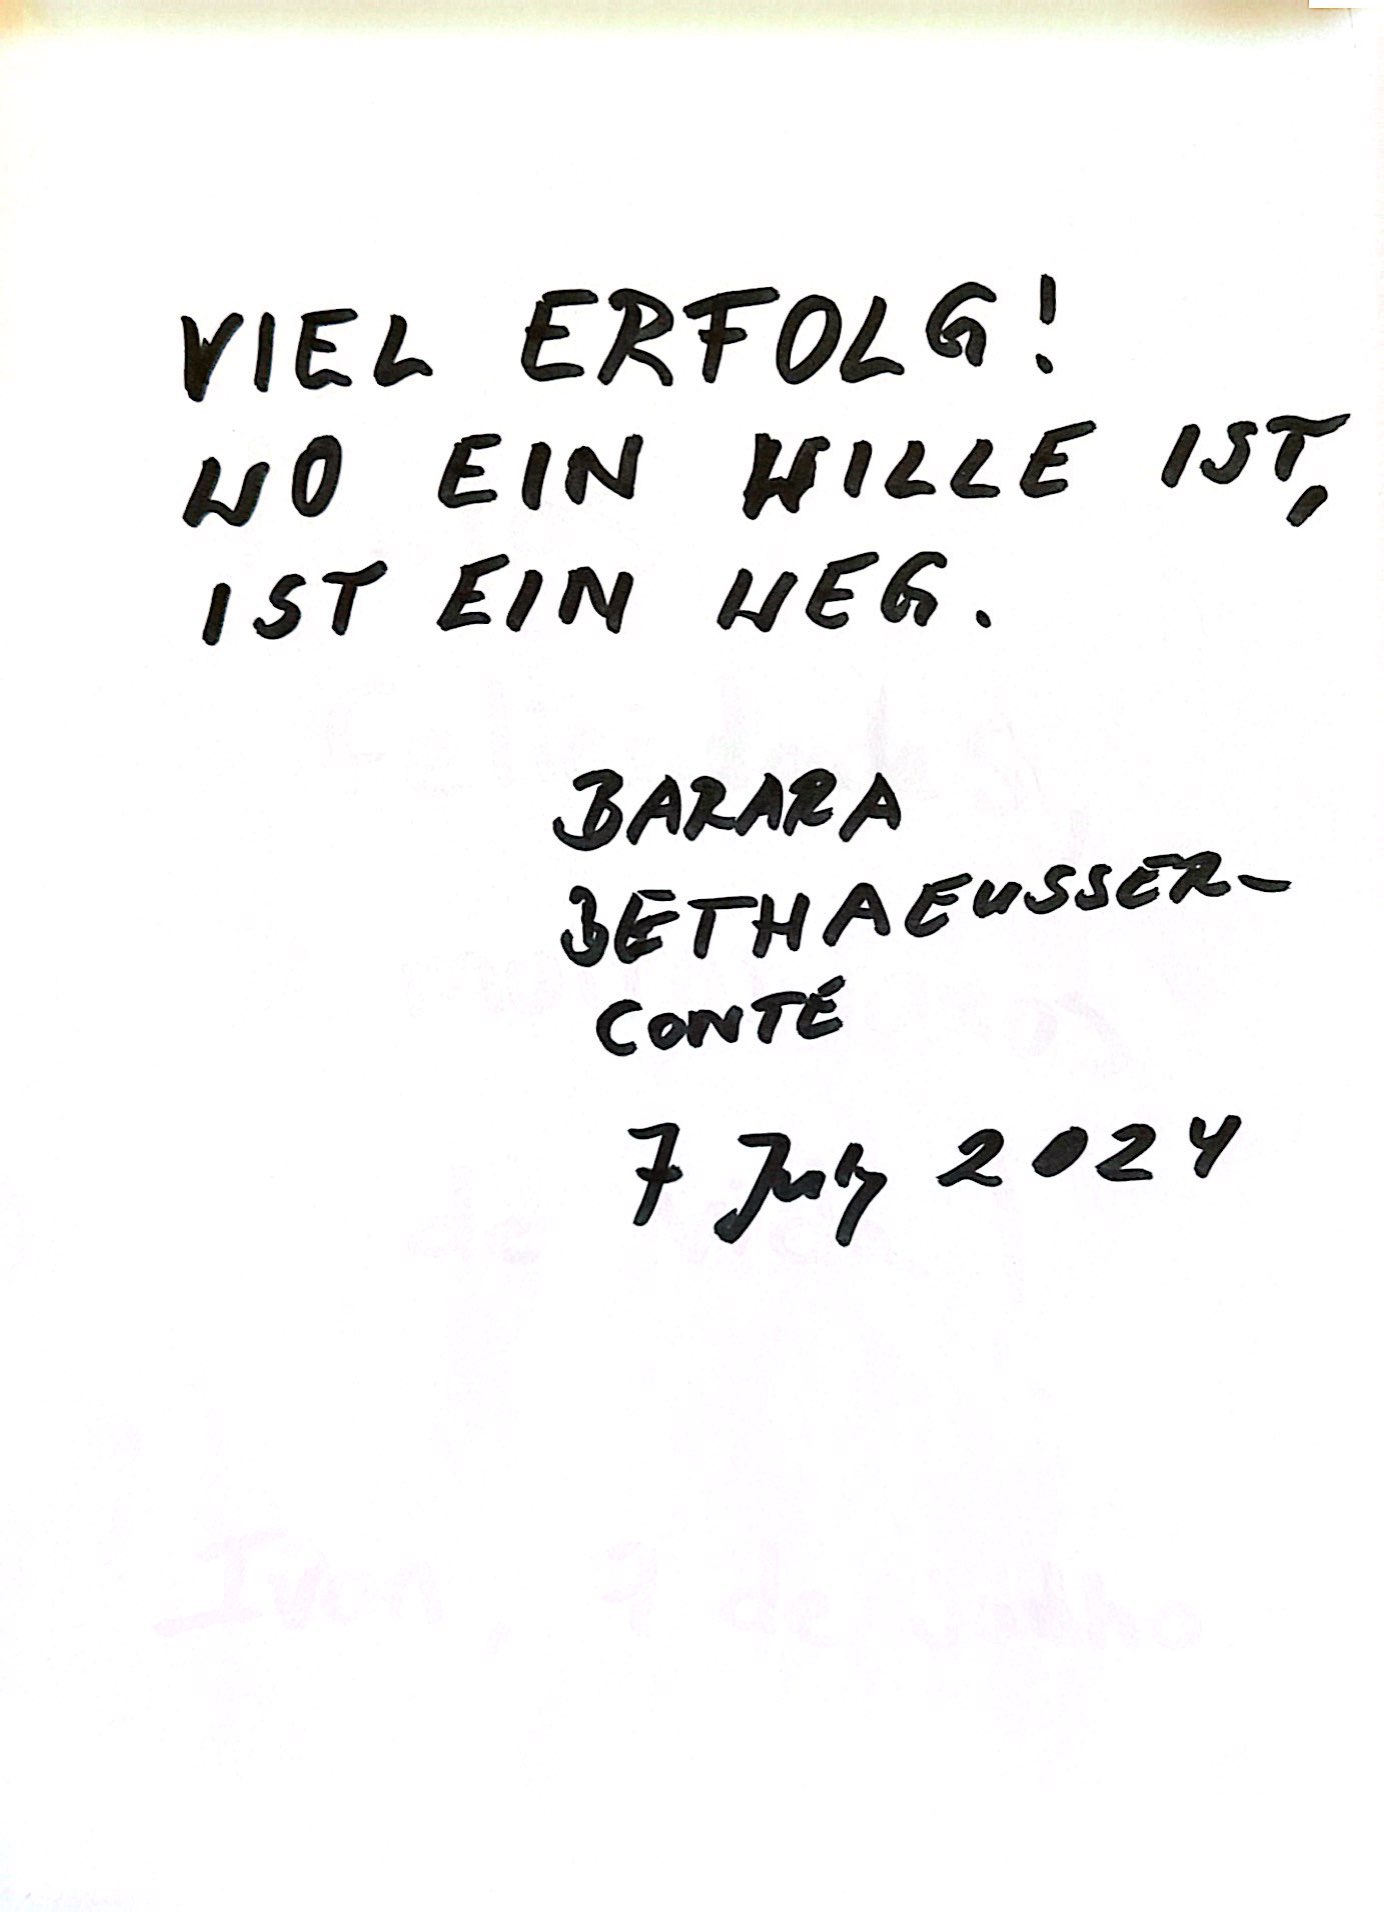 VIEL ERFOLG!
WO EIN WILLE IST,
IST EIN WEG.
BARARA
BETHAEUSSER-
CONTÉ
7 July 2024